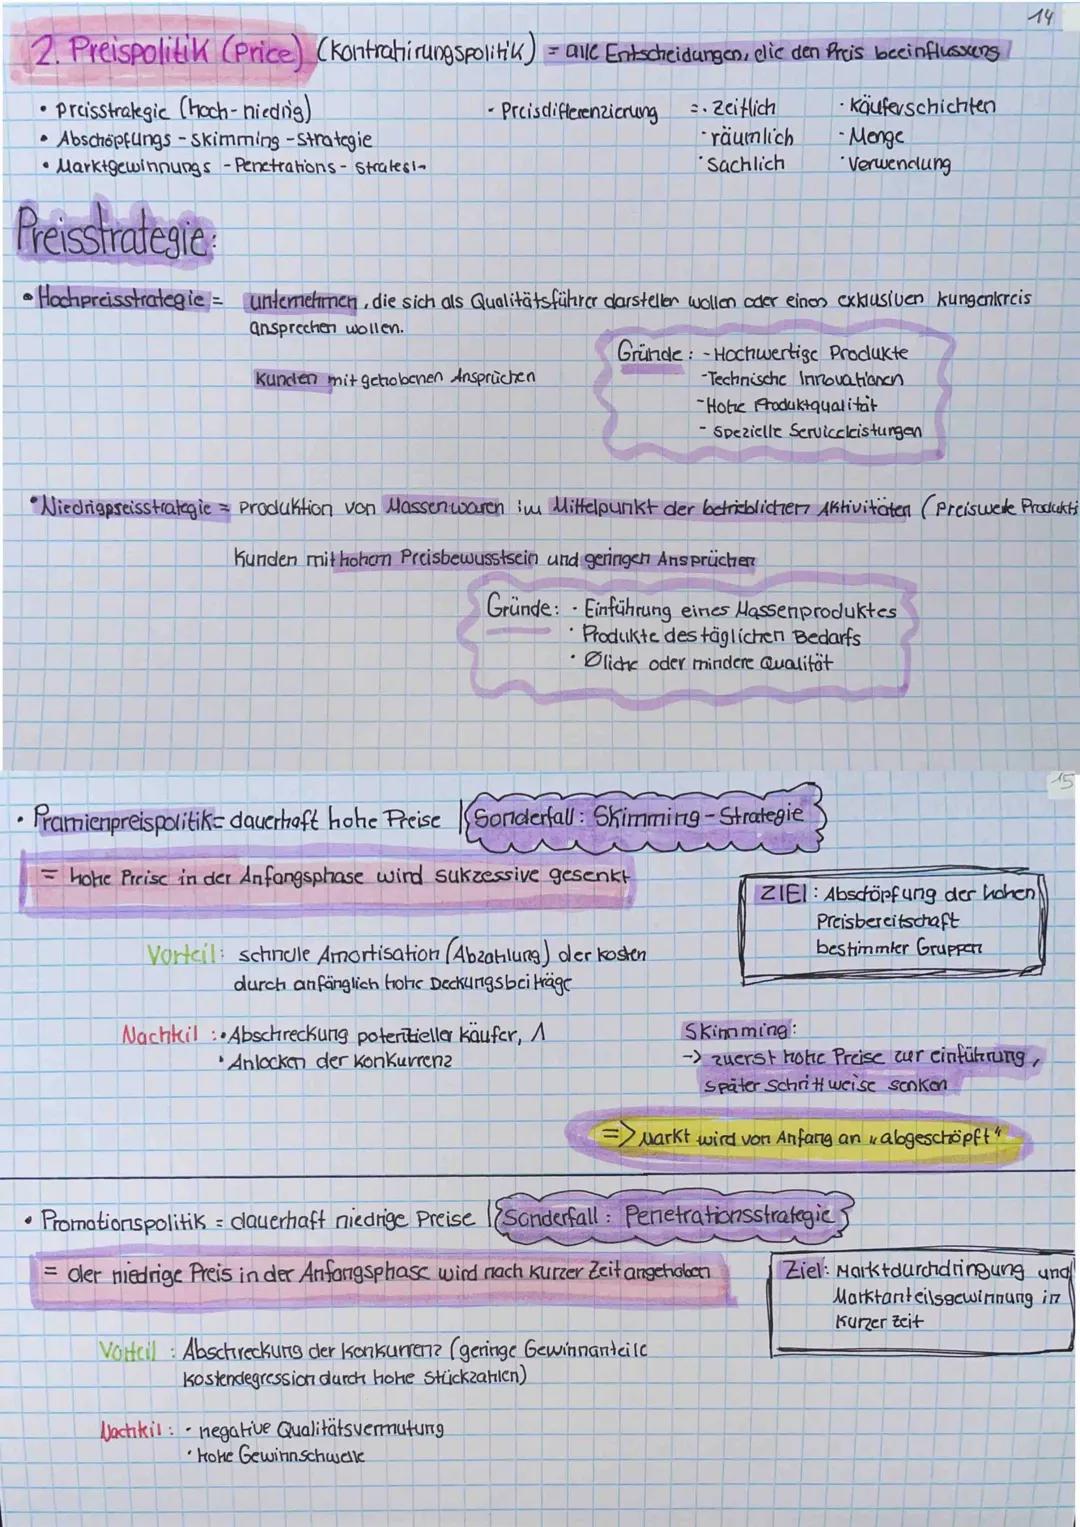 14
2. Preispolitik (Price) (Kontrahirungspolitik) = alle Entscheidungen, die den Preis beeinflussen
• Preisstrategie (hoch-niedrig)
• Abschöpfungs - Skimming - Strategie
• Marktgewinnungs - Penetrations - Strategie
- Preisdifferenzierung =
· zeitlich
· räumlich
· Sachlich
· Käuferschichten
· Menge
· Verwendung
Preisstrategie:
• Hochpreisstrategie = unternehmen, die sich als Qualitätsführer darstellen wollen oder einen exklusiven kungenkreis
ansprechen wollen.
Kunden mit gehobenen Ansprüchen
Gründe: - Hochwertige Produkte
- Technische Innovationen
- Hohe Produktqualität
- Spezielle Serviceleistungen
• Niedrigpreisstrategie = Produktion von Massenwaren im Mittelpunkt der betrieblichen Aktivitäten (Preiswerte Produkti
Kunden mit hohem Preisbewusstsein und geringen Ansprüchen
Gründe: · Einführung eines Massenproduktes
· Produkte des täglichen Bedarfs
· Øliche oder mindere Qualität
15
• Prämienpreispolitik = dauerhaft hohe Preise | Sonderfall: Skimming - Strategie
= hohe Preise in der Anfangsphase wird sukzessive gesenkt
ZIEl: Abschöpfung der hohen
Preisbereitschaft
bestimmter Gruppen
Vorteil: schnelle Amortisation (Abzahlung) der kosten
durch anfänglich hohe Deckungsbeiträge
Nachteil: • Abschreckung potentieller käufer, 1
• Anlocken der Konkurrenz
Skimming:
-> zuerst hohe Preise zur einführung,
später schrittweise senken
=> Markt wird von Anfang an „abgeschöpft“
• Promotionspolitik = dauerhaft niedrige Preise | Sonderfall: Penetrationsstrategie
= der niedrige Preis in der Anfangsphase wird nach kurzer Zeit angehoben
Ziel: Marktdurchdringung und
Marktanteilsgewinnung in
kurzer Zeit
Vorteil: Abschreckung der Konkurrenz (geringe Gewinnanteile
Kostendegression durch hohe Stückzahlen)
Nachteil: · negative Qualitätsvermutung
· hohe Gewinnschwelle